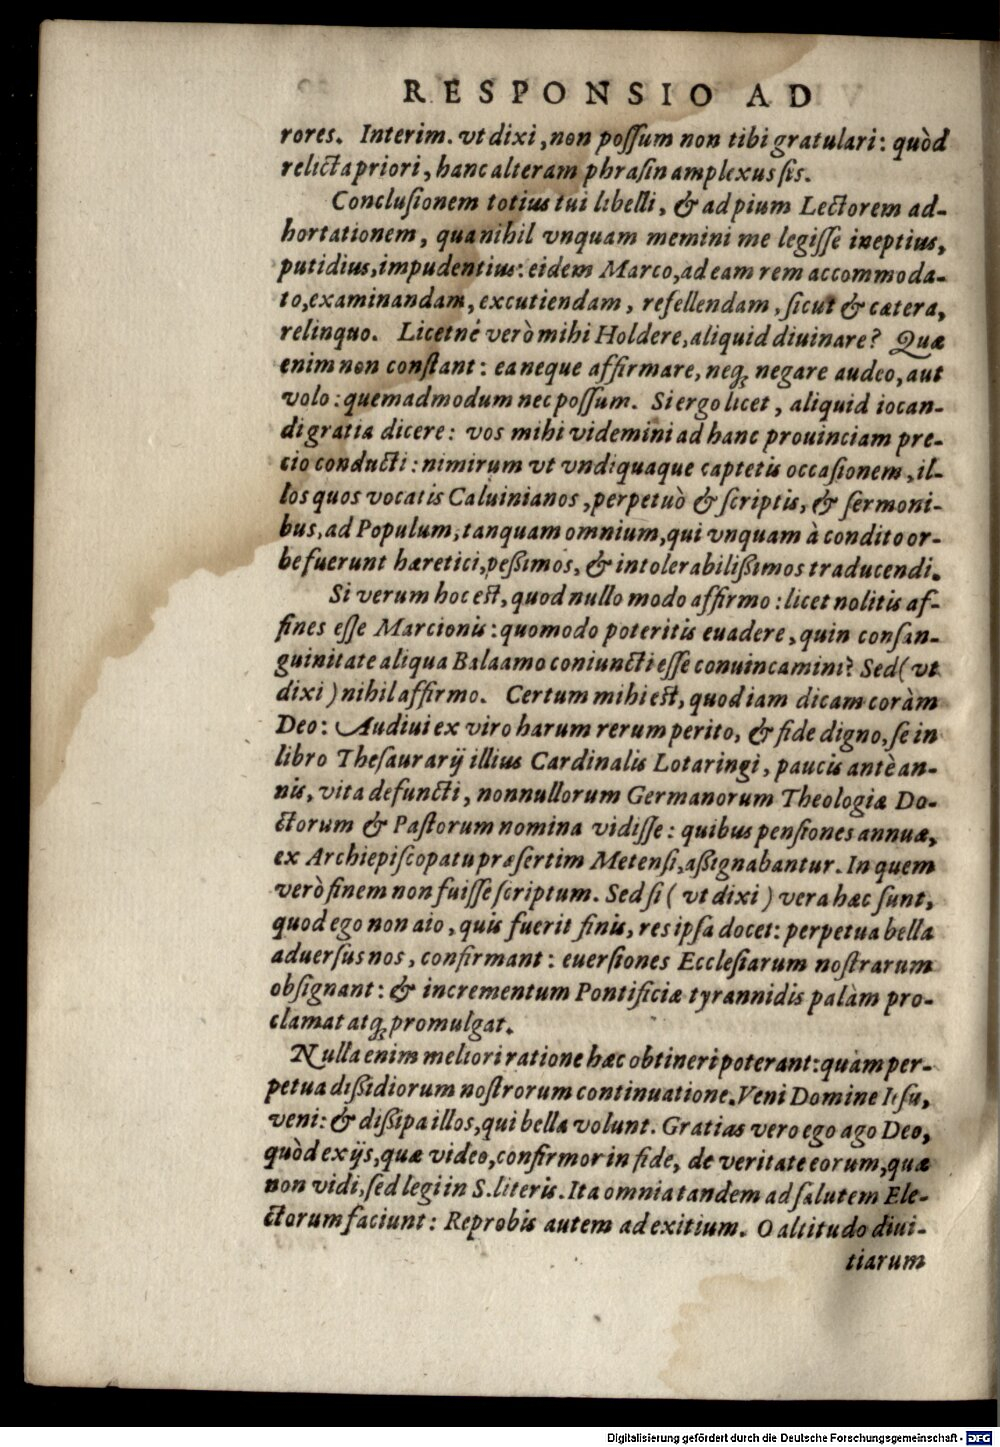 RESPONSIO AD
rores. Interim. vt dixi, non poſſum non tibi gratulari: quòd
relicta priori, hanc alteram phraſin amplexus ſis.
Concluſionem totius tui libelli, & ad pium Lectorem ad-
hortationem, qua nihil vnquam memini me legiſſe ineptius,
putidius, impudentius: eidem Marco, ad eam rem accommoda-
to, examinandam, excutiendam, refellendam, ſicut & cætera,
relinquo. Licetné verò mihi Holdere, aliquid diuinare? Quæ
enim non conſtant: ea neque affirmare, neq; negare audeo, aut
volo: quemadmodum nec poſſum. Si ergo licet, aliquid iocan-
di gratia dicere: vos mihi videmini ad hanc prouinciam pre-
cio conducti: nimirum vt vndiquaque captetis occaſionem, il-
los quos vocatis Caluinianos, perpetuò & ſcriptis, & ſermoni-
bus, ad Populum, tanquam omnium, qui vnquam à condito or-
be fuerunt hæretici, peßimos, & intolerabilißimos traducendi.
Si verum hoc eſt, quod nullo modo affirmo: licet nolitis af-
fines eſſe Marcionis: quomodo poteritis euadere, quin conſan-
guinitate aliqua Balaamo coniuncti eſſe conuincamini? Sed (vt
dixi) nihil affirmo. Certum mihi eſt, quod iam dicam coràm
Deo: Audiui ex viro harum rerum perito, & fide digno, ſe in
libro Theſaurarij illius Cardinalis Lotaringi, paucis antè an-
nis, vita defuncti, nonnullorum Germanorum Theologiæ Do-
ctorum & Paſtorum nomina vidiſſe: quibus penſiones annuæ,
ex Archiepiſcopatu præſertim Metenſi, aßignabantur. In quem
verò finem non fuiſſe ſcriptum. Sed ſi (vt dixi) vera hæc ſunt,
quod ego non aio, quis fuerit finis, res ipſa docet: perpetua bella
aduerſus nos, confirmant: euerſiones Eccleſiarum noſtrarum
obſignant: & incrementum Pontificiæ tyrannidis palàm pro-
clamat atq; promulgat.
Nulla enim meliori ratione hæc obtineri poterant: quàm per-
petua dißidiorum noſtrorum continuatione. Veni Domine Ieſu,
veni: & dißipa illos, qui bella volunt. Gratias vero ego ago Deo,
quòd ex ijs, quæ video, confirmor in fide, de veritate eorum, quæ
non vidi, ſed legi in S. literis. Ita omnia tandem ad ſalutem Ele-
ctorum faciunt: Reprobis autem ad exitium. O altitudo diui-
tiarum
Digitalisierung gefördert durch die Deutsche Forschungsgemeinschaft - DFG